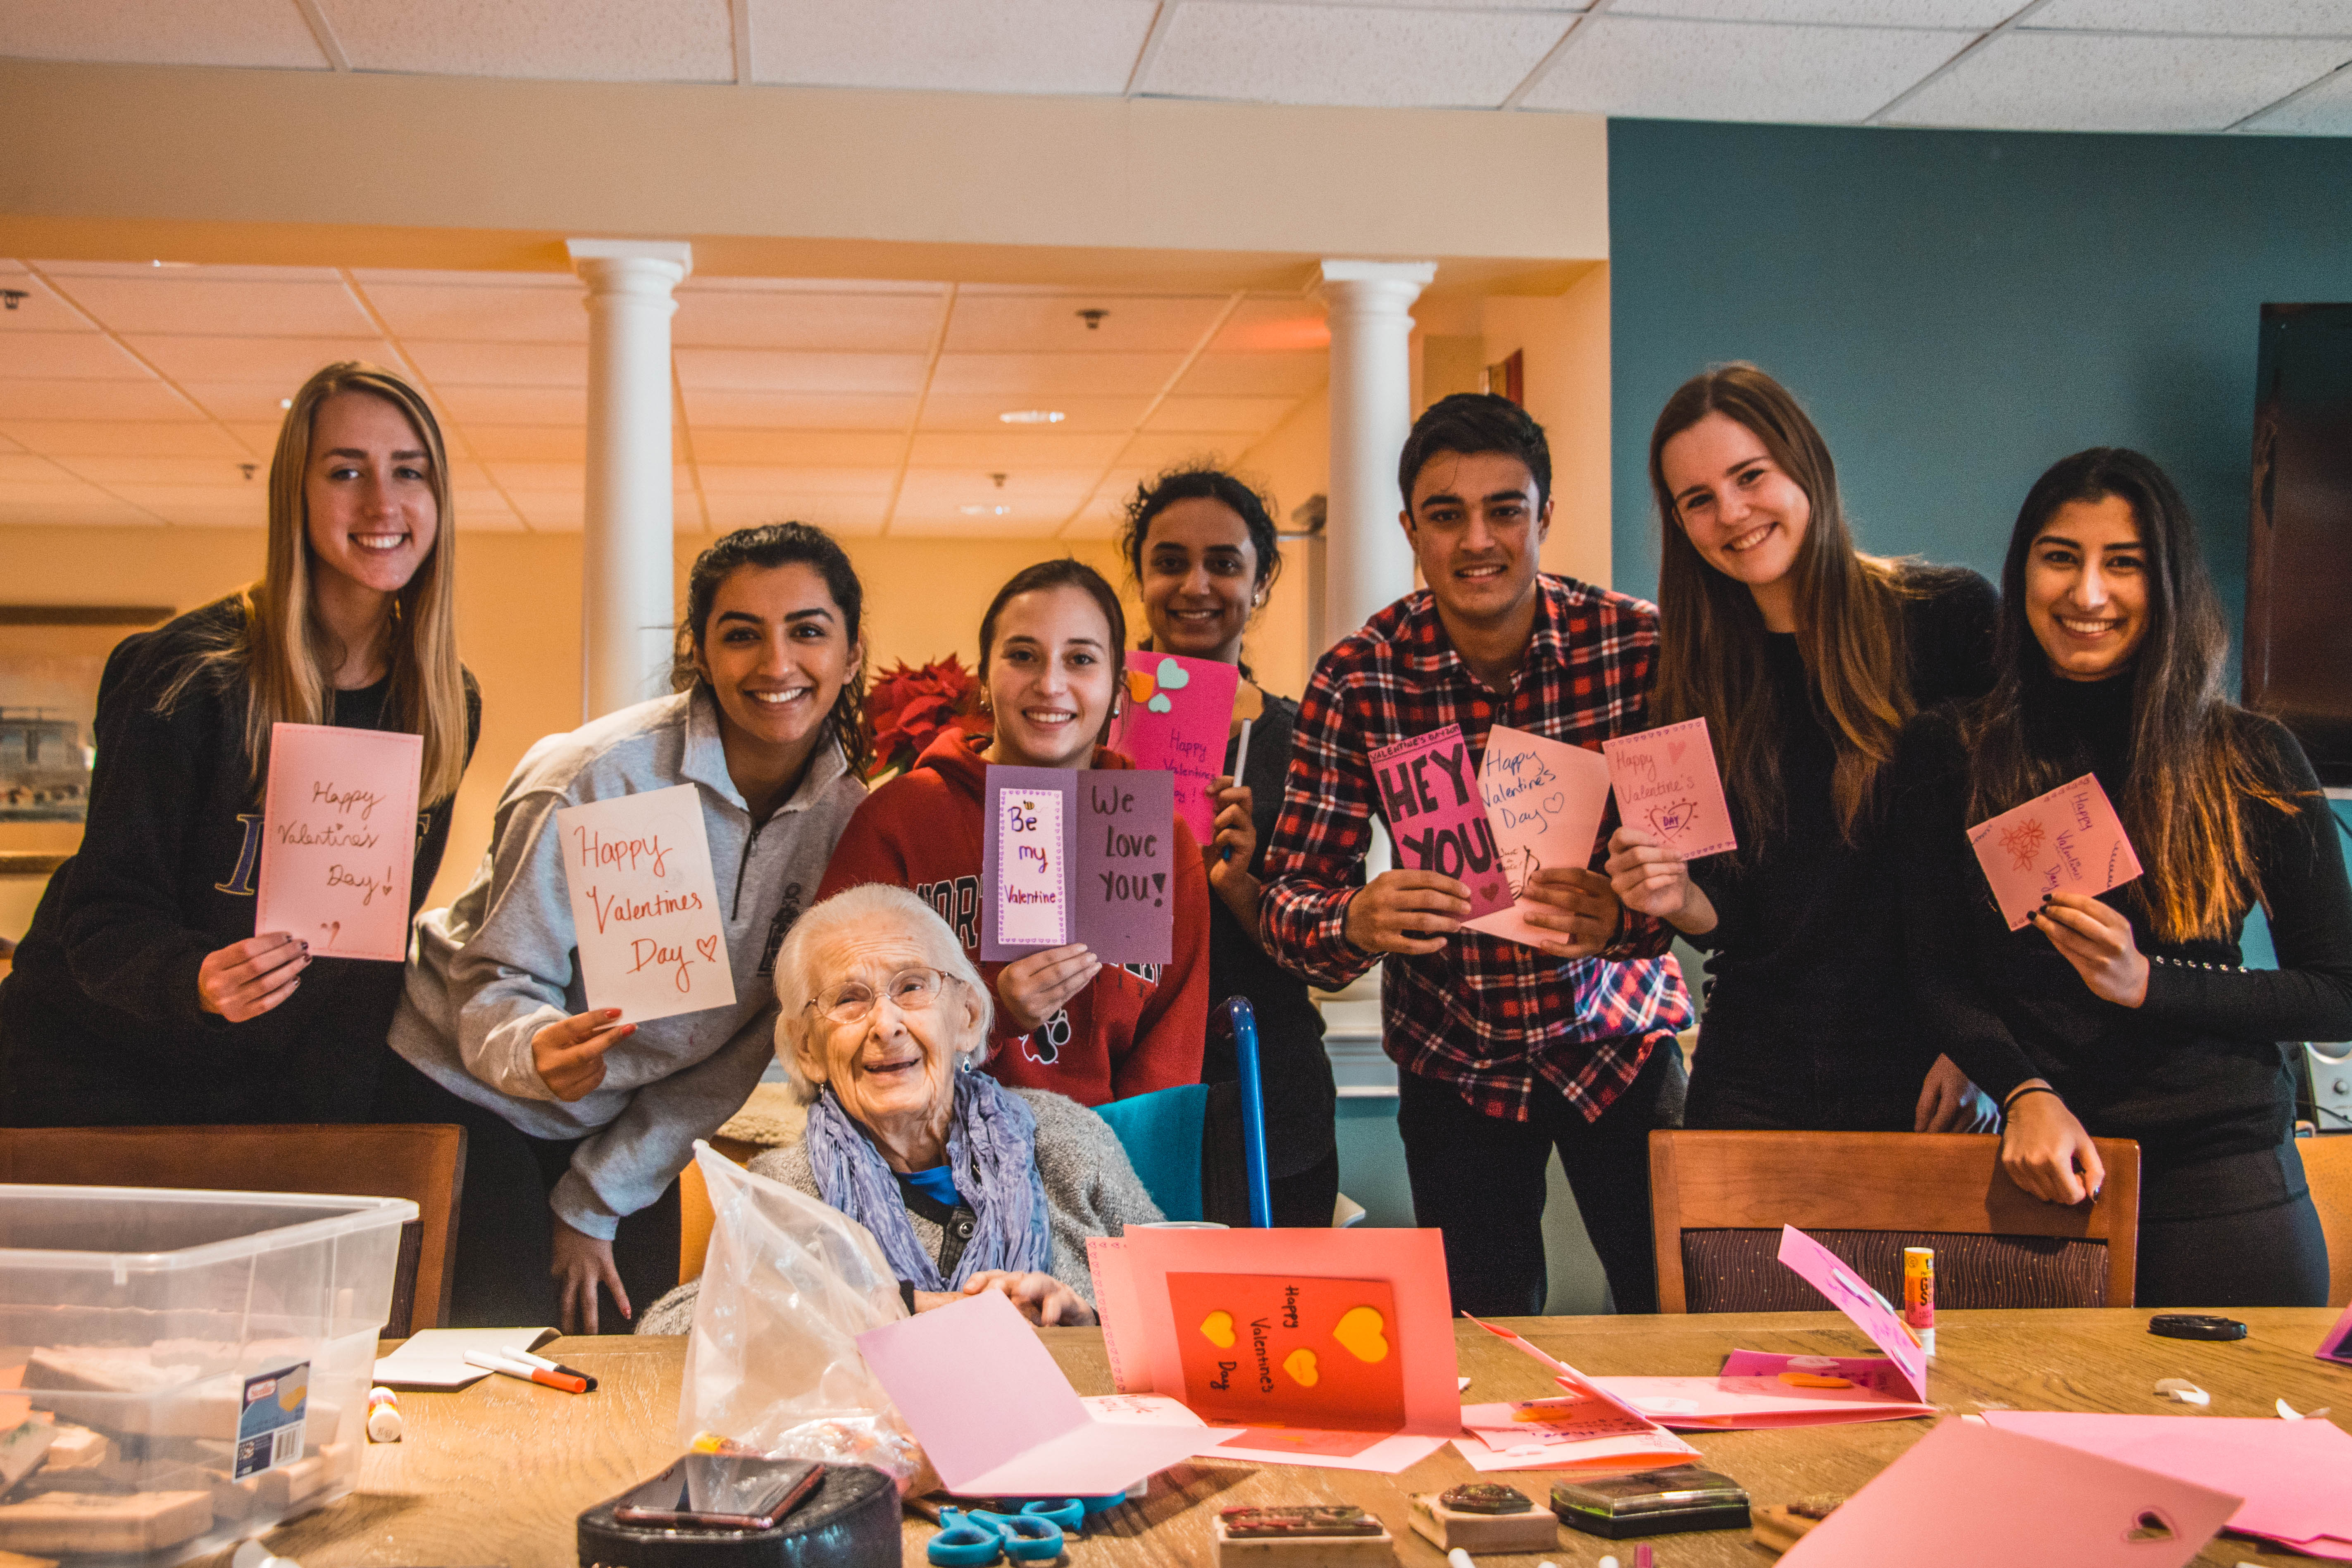 Happy
Valentine's
Day!
Happy
Valentines
Day
Be
my
Valentine
We
Love
you!
Happy
Valentines
HEY
YOU!
Happy
Valentine's
Day
Happy
Valentine's
DAY
Happy
Valentines
Day
Happy
Valentine's
Day